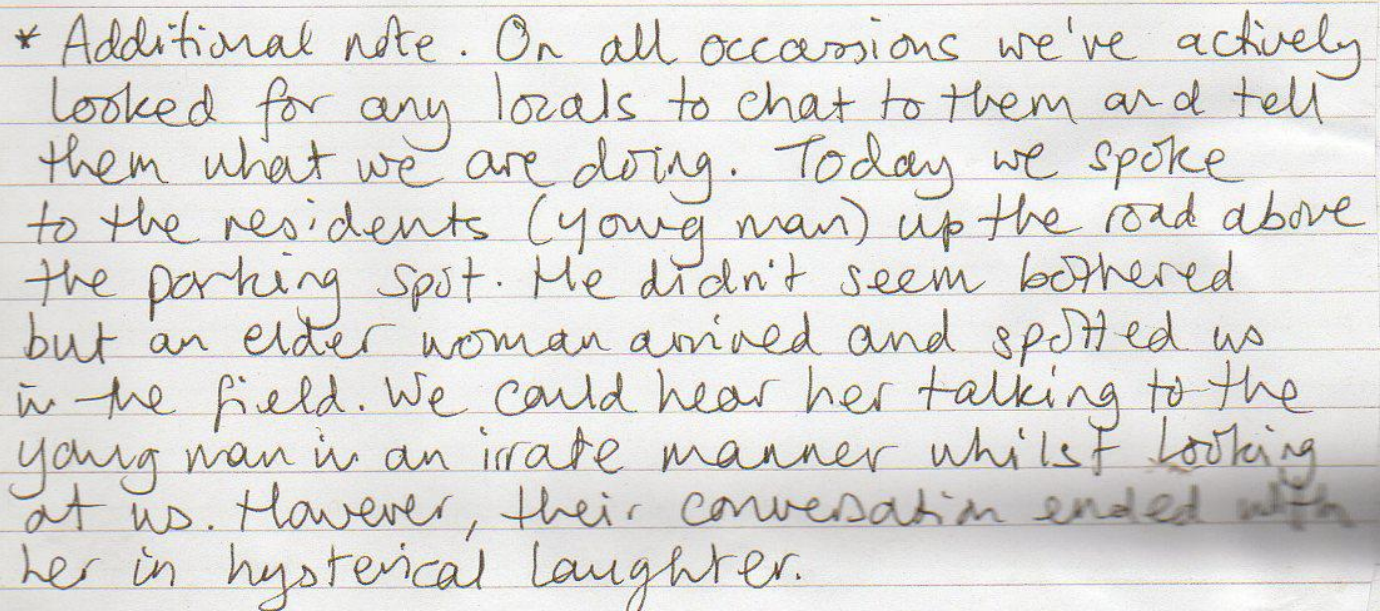 * Additional note. On all occassions we've actively
looked for any locals to chat to them and tell
them what we are doing. Today we spoke
to the residents (young man) up the road above
the parking spot. He didn't seem bothered
but an elder woman arrived and spotted us
in the field. We could hear her talking to the
young man in an irrate manner whilst looking
at us. However, their conversation ended with
her in hysterical laughter.